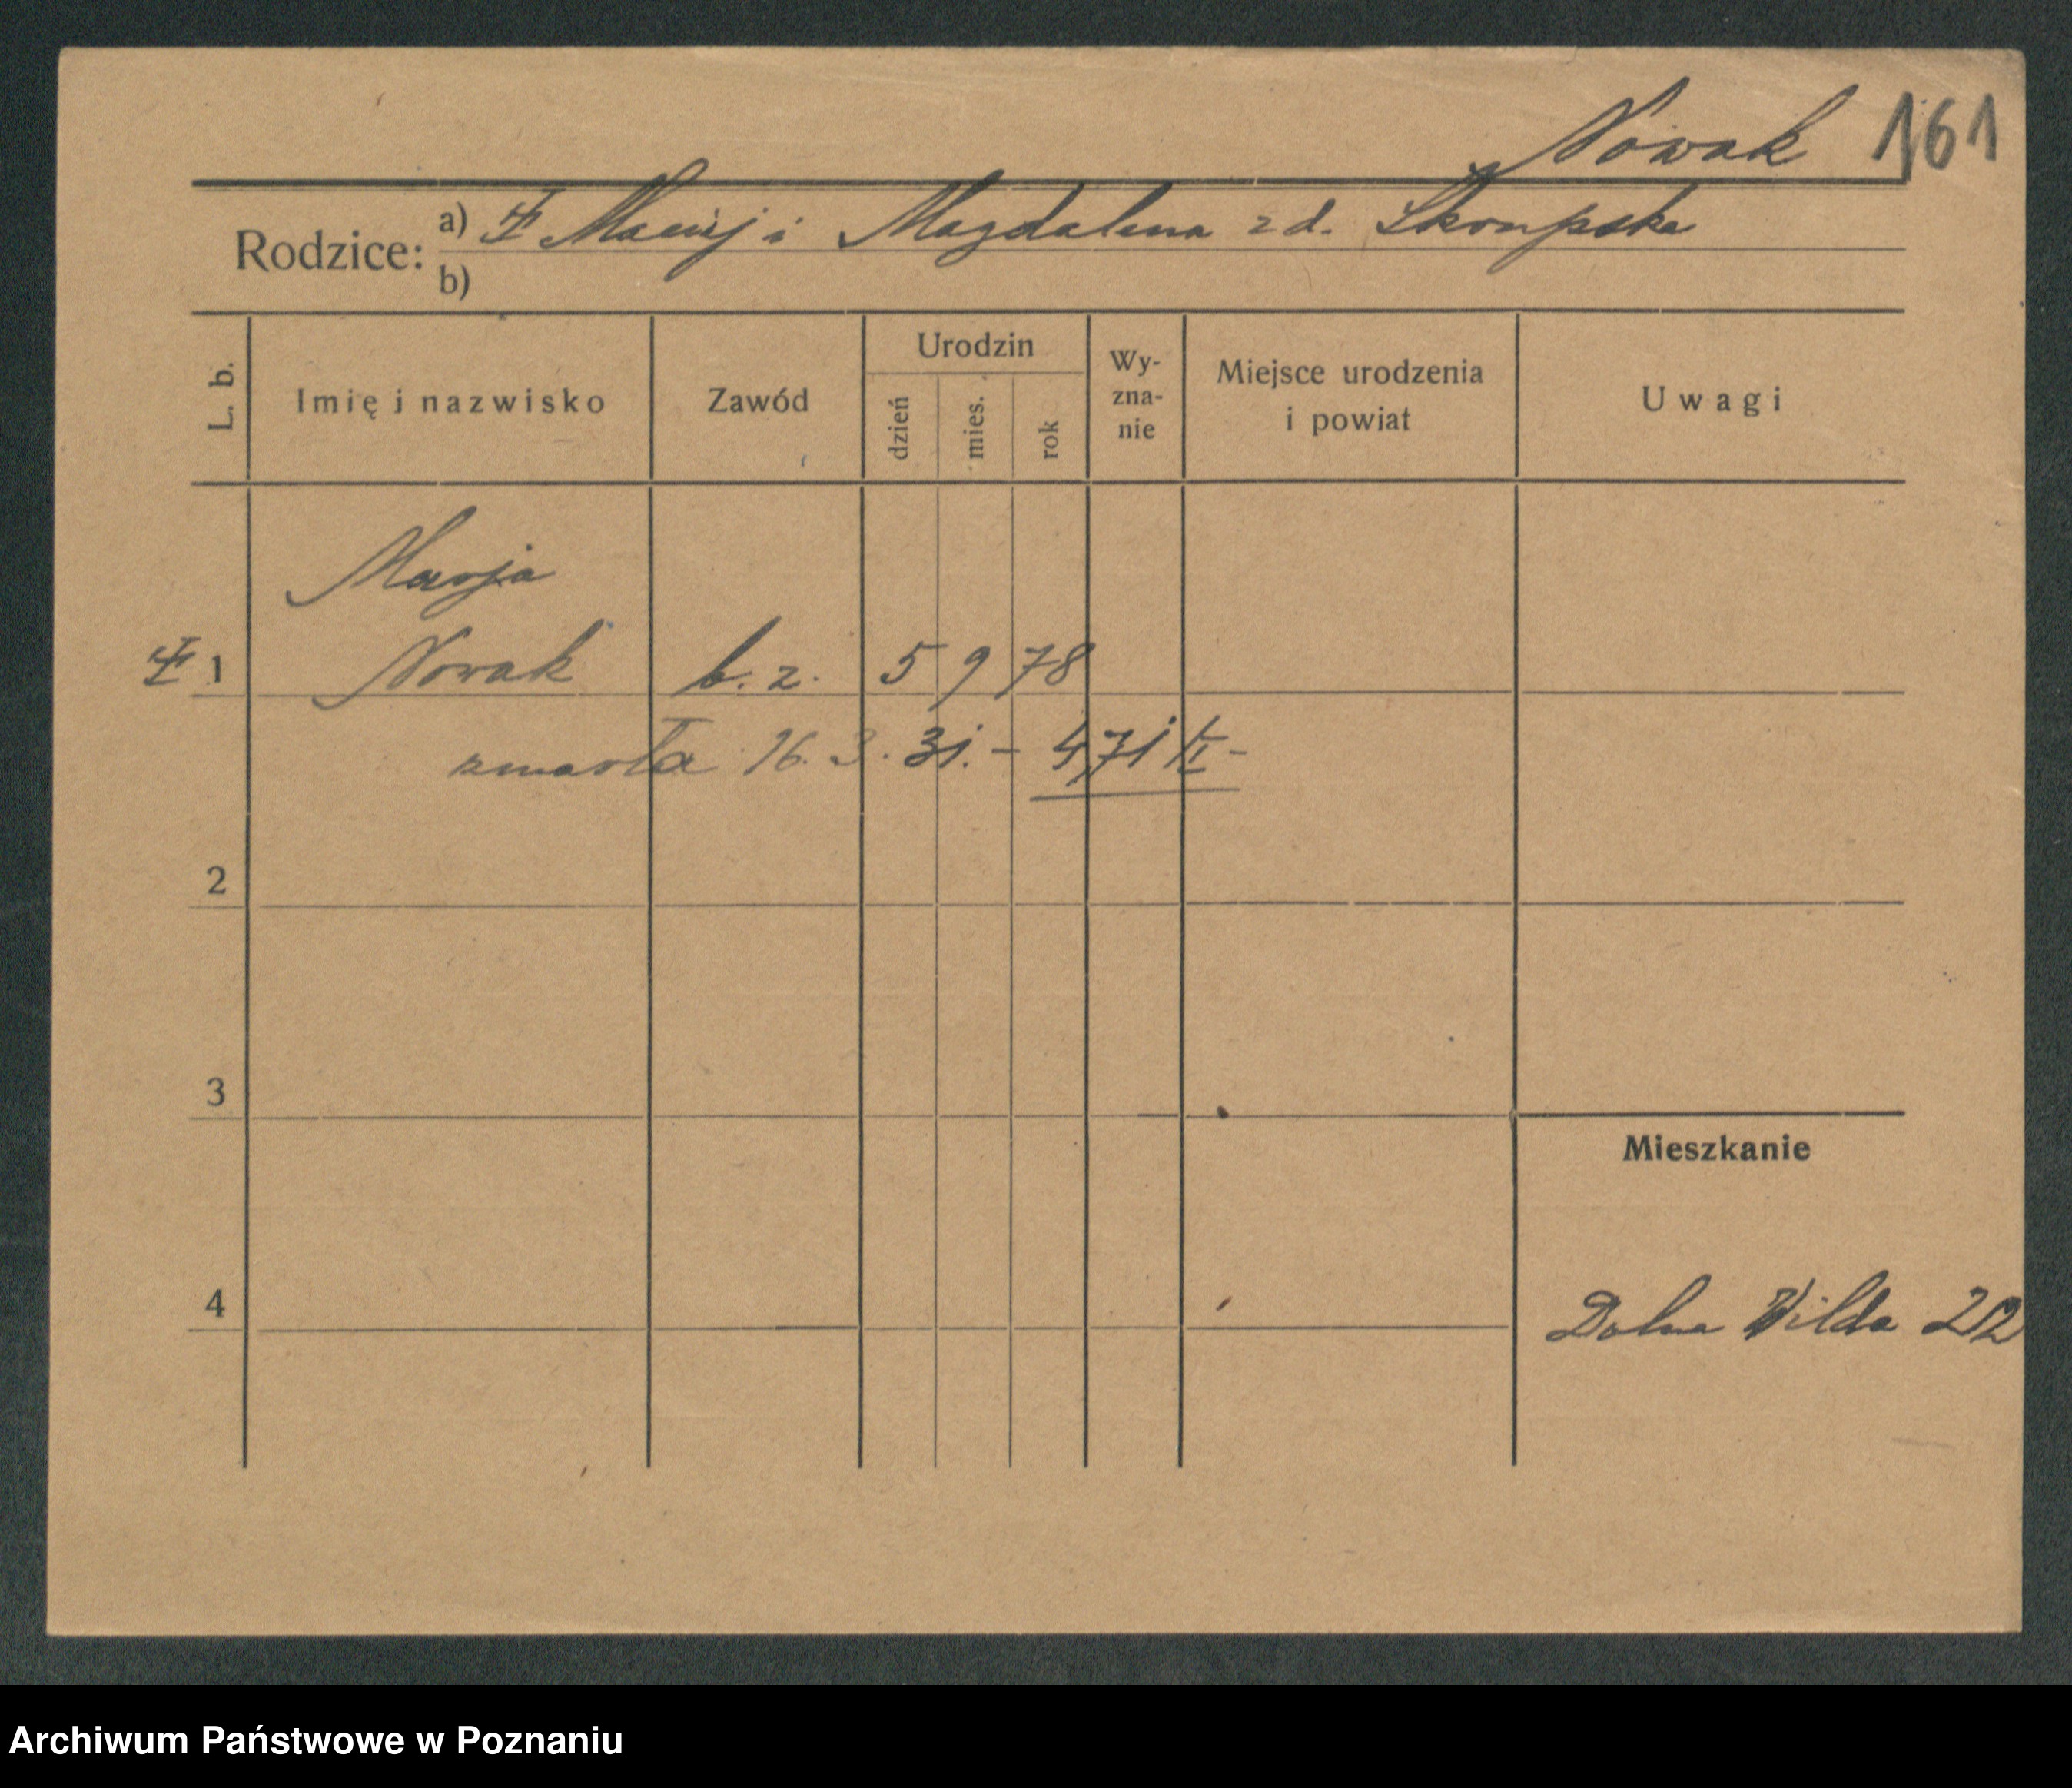 Nowak 161
Rodzice: a) Maciej i Magdalena z d. Skoupska
b)
L. b. Imię i nazwisko Zawód Urodzin dzień mies. rok Wy-zna-nie Miejsce urodzenia i powiat Uwagi
Marja
1 Nowak b. z. 5 9 78
zmarła 16. 3. 31. - 471 II -
2
3
Mieszkanie
4 Dolna Wilda 22
Archiwum Państwowe w Poznaniu